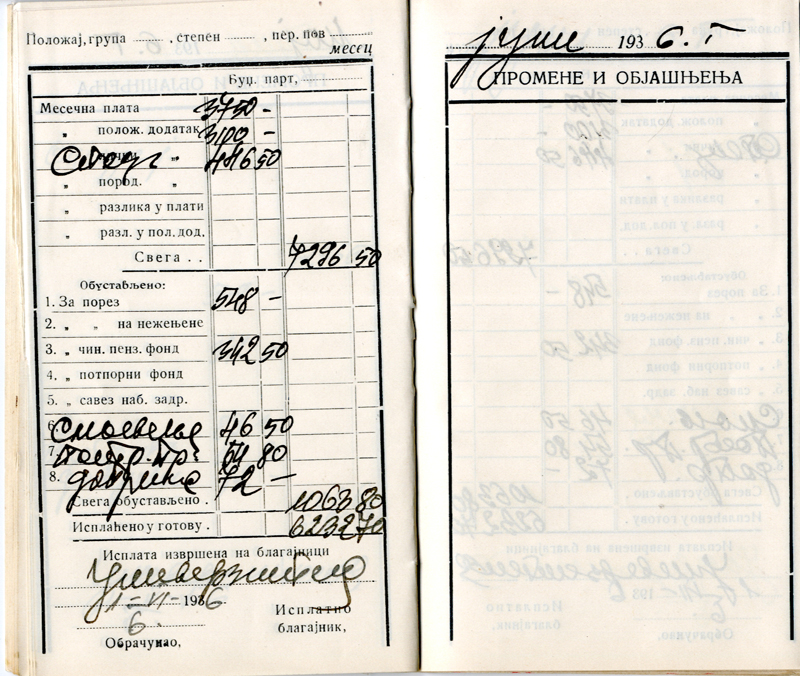 Положај, група , степен , пер. пов
месец
Буџ. парт,
Месечна плата 3750 -
„ полож. додатак 3100 -
„ „ 446 50
„ пород. „
„ разлика у плати
„ разл. у пол. дод.
Свега . . 7296 50
Обустављено:
1. За порез 548 -
2. „ „ на нежењене
3. „ чин. пенз. фонд 342 50
4. „ потпорни фонд
5. „ савез наб. задр.
6. 46 50
7. 54 80
8. 72 -
Свега обустављено . 1063 80
Исплаћено у готову . 6232 70
Исплата извршена на благајници
Универзитета
1-VI- 1936
6.
Обрачунао,
Исплатио
благајник,
јуни 1936. г
ПРОМЕНЕ И ОБЈАШЊЕЊА